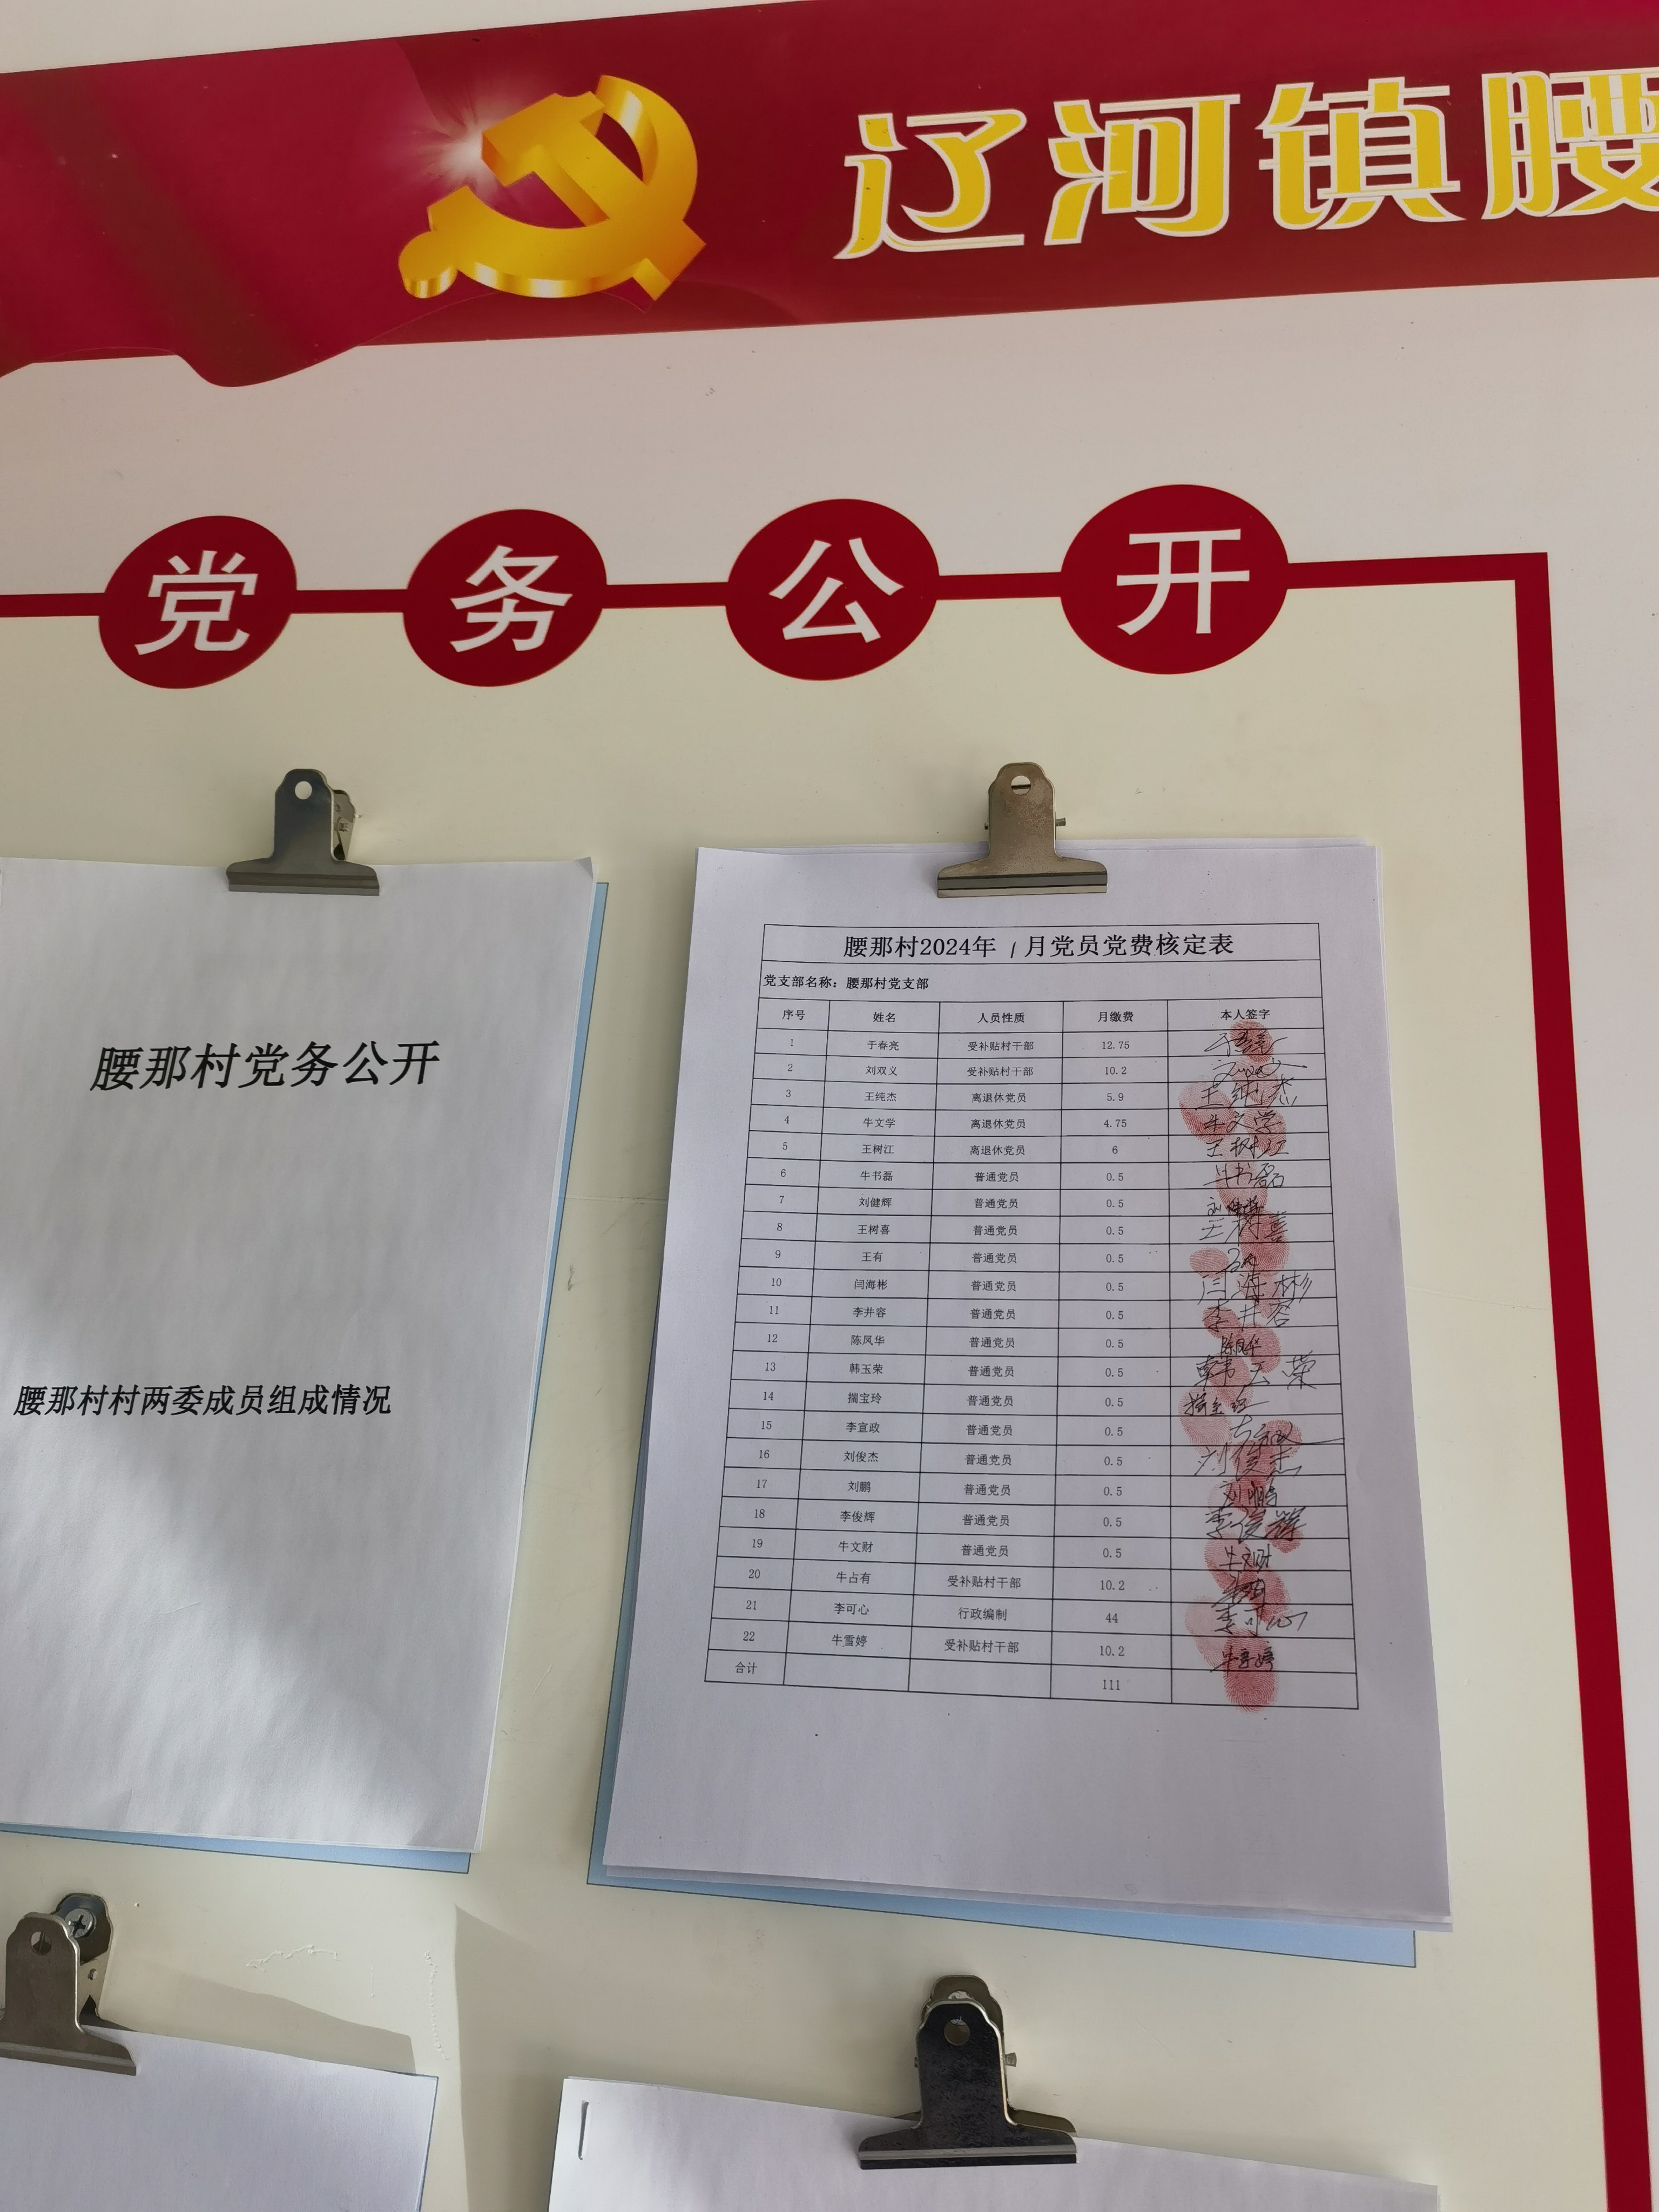 辽河镇腰
党务公开
腰那村党务公开
腰那村村两委成员组成情况
腰那村2024年 1月党员党费核定表
党支部名称：腰那村党支部
序号 姓名 人员性质 月缴费 本人签字
1 于春亮 受补贴村干部 12.75 于春亮
2 刘双义 受补贴村干部 10.2 刘双义
3 王纯杰 离退休党员 5.9 王纯杰
4 牛文学 离退休党员 4.75 牛文学
5 王树江 离退休党员 6 王树江
6 牛书磊 普通党员 0.5 牛书磊
7 刘健辉 普通党员 0.5
8 王树喜 普通党员 0.5 王树喜
9 王有 普通党员 0.5
10 闫海彬 普通党员 0.5 闫海彬
11 李井容 普通党员 0.5 李井容
12 陈凤华 普通党员 0.5 陈凤华
13 韩玉荣 普通党员 0.5 韩玉荣
14 揣宝玲 普通党员 0.5
15 李宣政 普通党员 0.5
16 刘俊杰 普通党员 0.5 刘俊杰
17 刘鹏 普通党员 0.5 刘鹏
18 李俊辉 普通党员 0.5 李俊辉
19 牛文财 普通党员 0.5 牛文财
20 牛占有 受补贴村干部 10.2
21 李可心 行政编制 44 李可心
22 牛雪婷 受补贴村干部 10.2 牛雪婷
合计 111